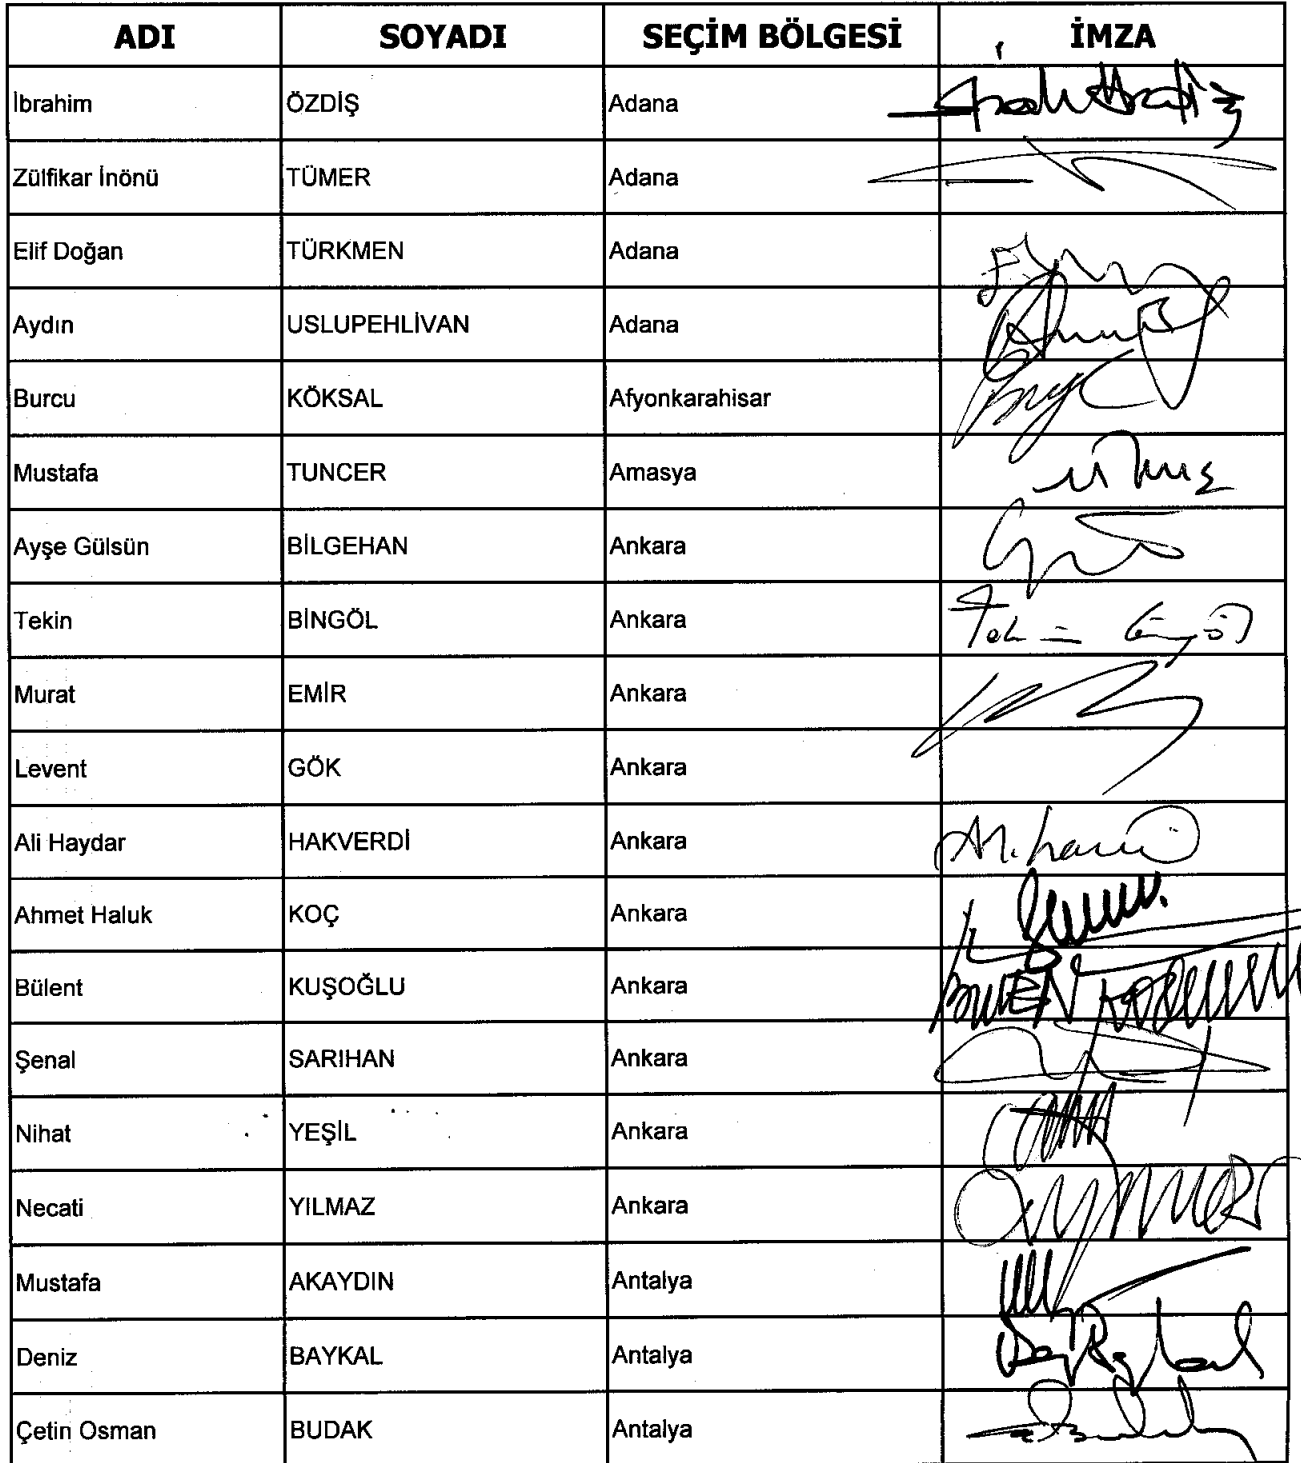 ADI SOYADI SEÇİM BÖLGESİ İMZA
İbrahim ÖZDİŞ Adana
Zülfikar İnönü TÜMER Adana
Elif Doğan TÜRKMEN Adana
Aydın USLUPEHLİVAN Adana
Burcu KÖKSAL Afyonkarahisar
Mustafa TUNCER Amasya
Ayşe Gülsün BİLGEHAN Ankara
Tekin BİNGÖL Ankara
Murat EMİR Ankara
Levent GÖK Ankara
Ali Haydar HAKVERDİ Ankara
Ahmet Haluk KOÇ Ankara
Bülent KUŞOĞLU Ankara
Şenal SARIHAN Ankara
Nihat YEŞİL Ankara
Necati YILMAZ Ankara
Mustafa AKAYDIN Antalya
Deniz BAYKAL Antalya
Çetin Osman BUDAK Antalya